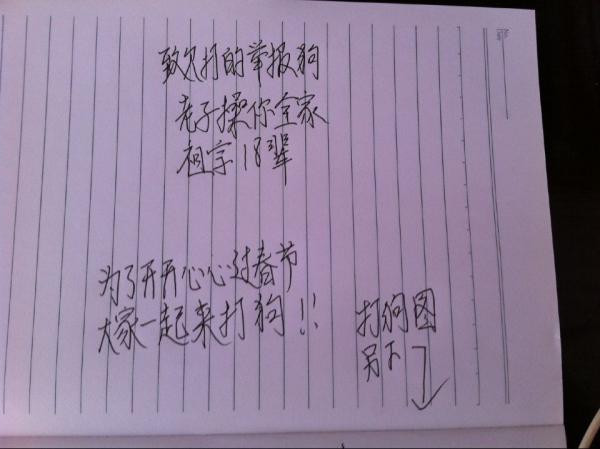 致欠打的举报狗
老子操你全家
祖宗18辈
为了开开心心过春节
大家一起来打狗!!
打狗图
另下